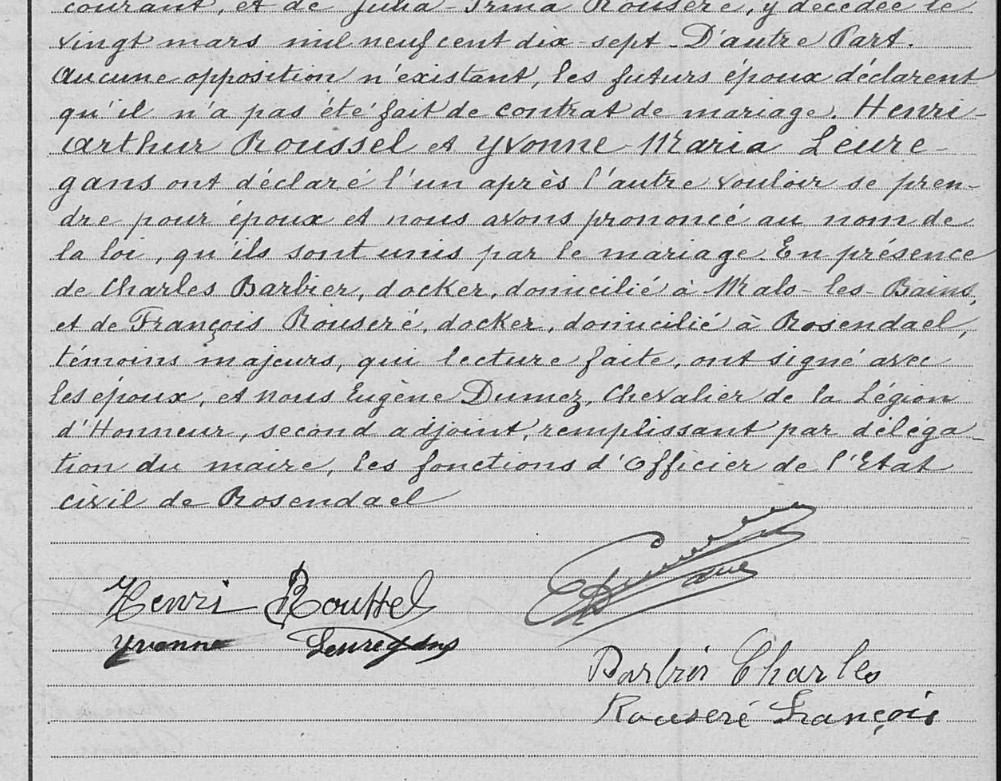 courant, et de Julia-Irma Rouseré, y décédée le
vingt mars mil neuf cent dix-sept - D'autre Part.
Aucune opposition n'existant, les futurs époux déclarent
qu'il n'a pas été fait de contrat de mariage. Henri-
Arthur Roussel et Yvonne-Maria Leure-
gans ont déclaré l'un après l'autre vouloir se pren-
dre pour époux et nous avons prononcé au nom de
la loi, qu'ils sont unis par le mariage. En présence
de Charles Barbier, docker, domicilié à Malo-les-Bains,
et de François Rouseré, docker, domicilié à Rosendael,
témoins majeurs, qui lecture faite, ont signé avec
les époux, et nous Eugène Dumez, Chevalier de la Légion
d'Honneur, second adjoint, remplissant par déléga-
tion du maire, les fonctions d'Officier de l'Etat
civil de Rosendael
Henri Roussel
Yvonne Leuregans
Barbier Charles
Rouseré François